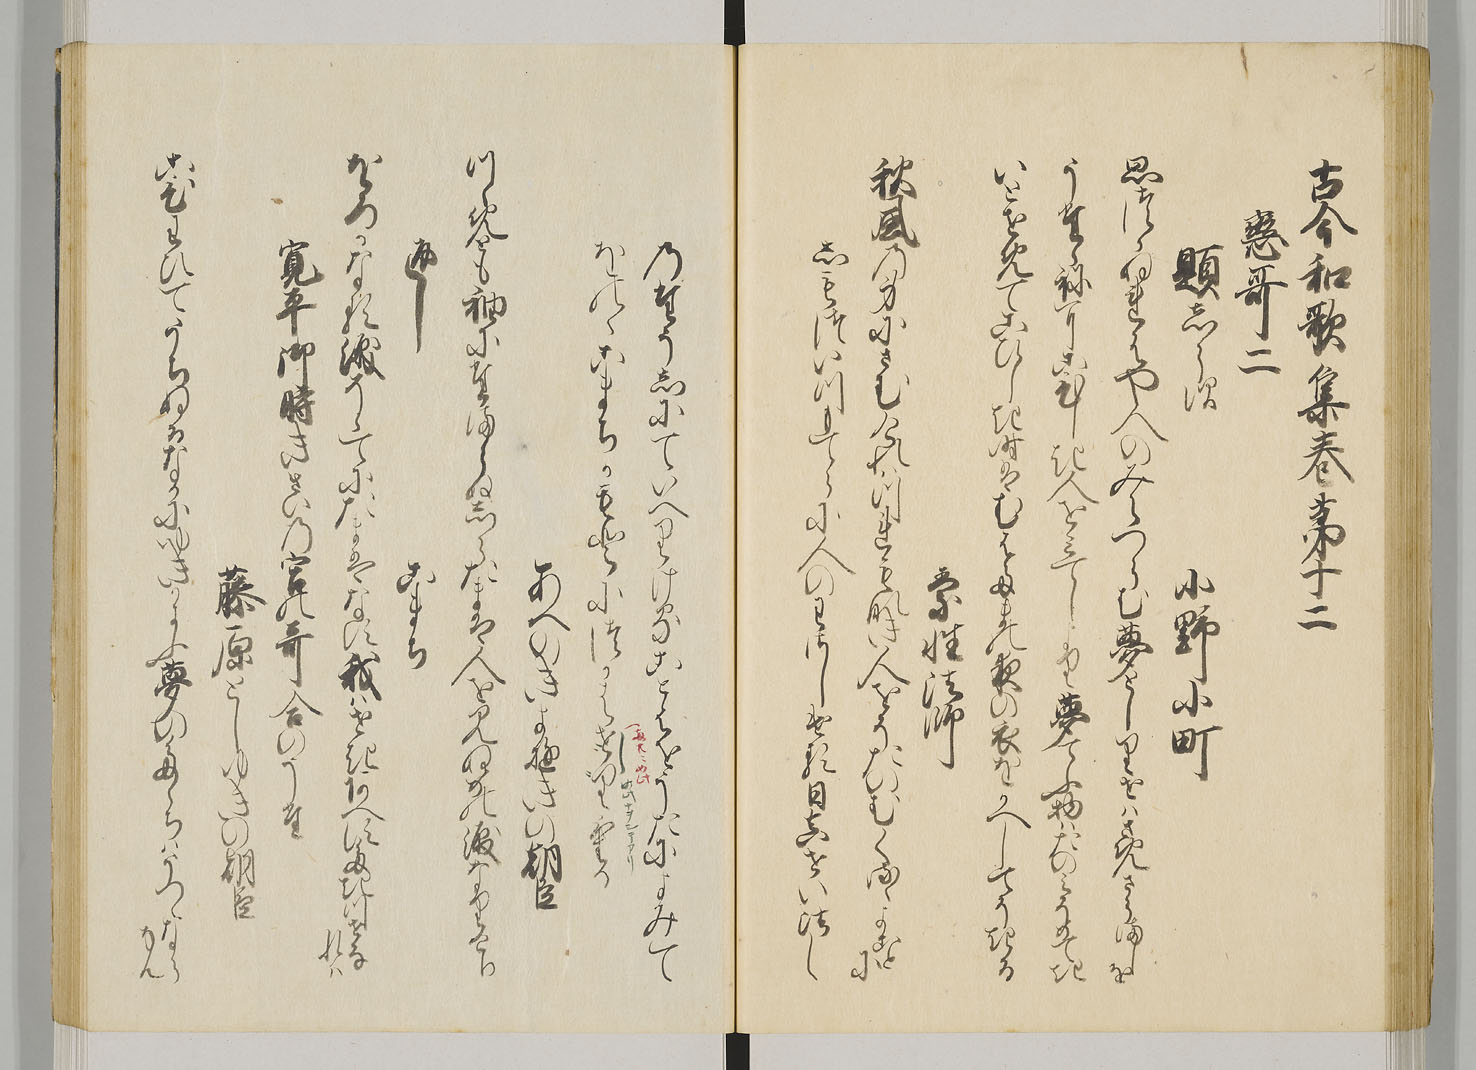 古今和歌集巻第十二
恋哥二
題しらす
小野小町
思つゝぬれはや人のみえつらむ夢としりせはさめさらましを
うたゝねに恋しき人をみてしより夢てふ物はたのみそめてき
いとせめてこひしき時はむはたまの夜の衣をかへしてそきる
素性法師
秋風の身にさむけれはつれもなき人をそたのむくるゝよことに
しもついつもてらに人のわさしける日真せい法し
のたうしにていへりけることはをうたによみて
をのゝこまちかもとにつかはせりける
あへのきよゆきの朝臣
つゝめとも袖にたまらぬしらたまは人を見ぬめの涙なりけり
返し
こまち
をろかなる涙そ袖にたまはなす我はせきあへすたきつせなれは
寛平御時きさいの宮の哥合のうた
藤原としゆきの朝臣
恋わひてうちぬるなかにゆきかよふ夢のたゝちはうつゝならなん